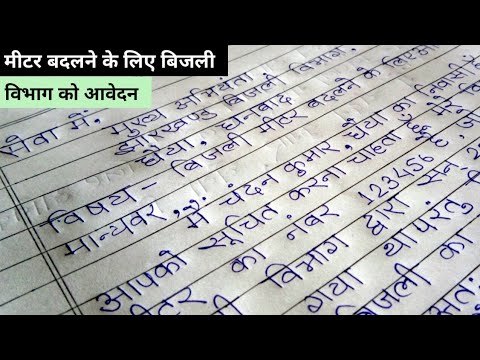 मीटर बदलने के लिए बिजली
विभाग को आवेदन
सेवा में,
मुख्य अभियंता
झारखण्ड बिजली विभाग,
धैया, धनबाद
विषय- बिजली मीटर बदलने के लिए
मान्यवर, मैं चंदन कुमार धैया का निवासी
आपको सूचित करना चाहता हूँ मेरे
मीटर का नंबर 123456 है
विभाग द्वारा सन
गया था परंतु
बिजली का
अतः